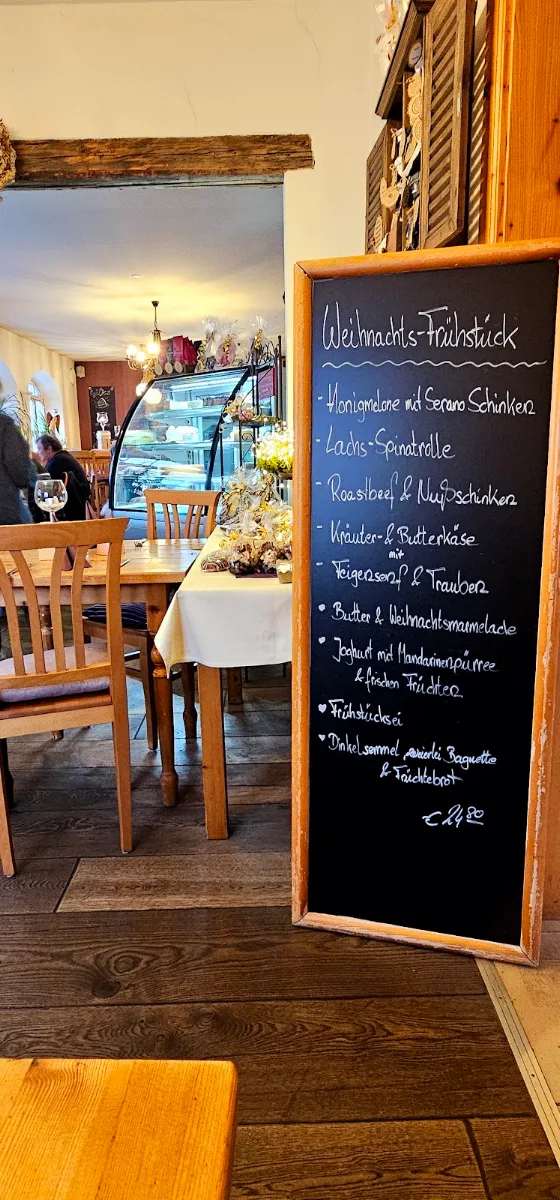 Weihnachts-Frühstück
- Honigmelone mit Serano Schinken
- Lachs-Spinatrolle
- Roastbeef & Nußschinken
- Kräuter- & Butterkäse
mit
- Feigensenf & Trauben
• Butter & Weihnachtsmarmelade
• Joghurt mit Mandarinenpürree
& frischen Früchten
♥ Frühstücksei
♥ Dinkelsemmel zweierlei Baguette
& Früchtebrot
€ 24 80